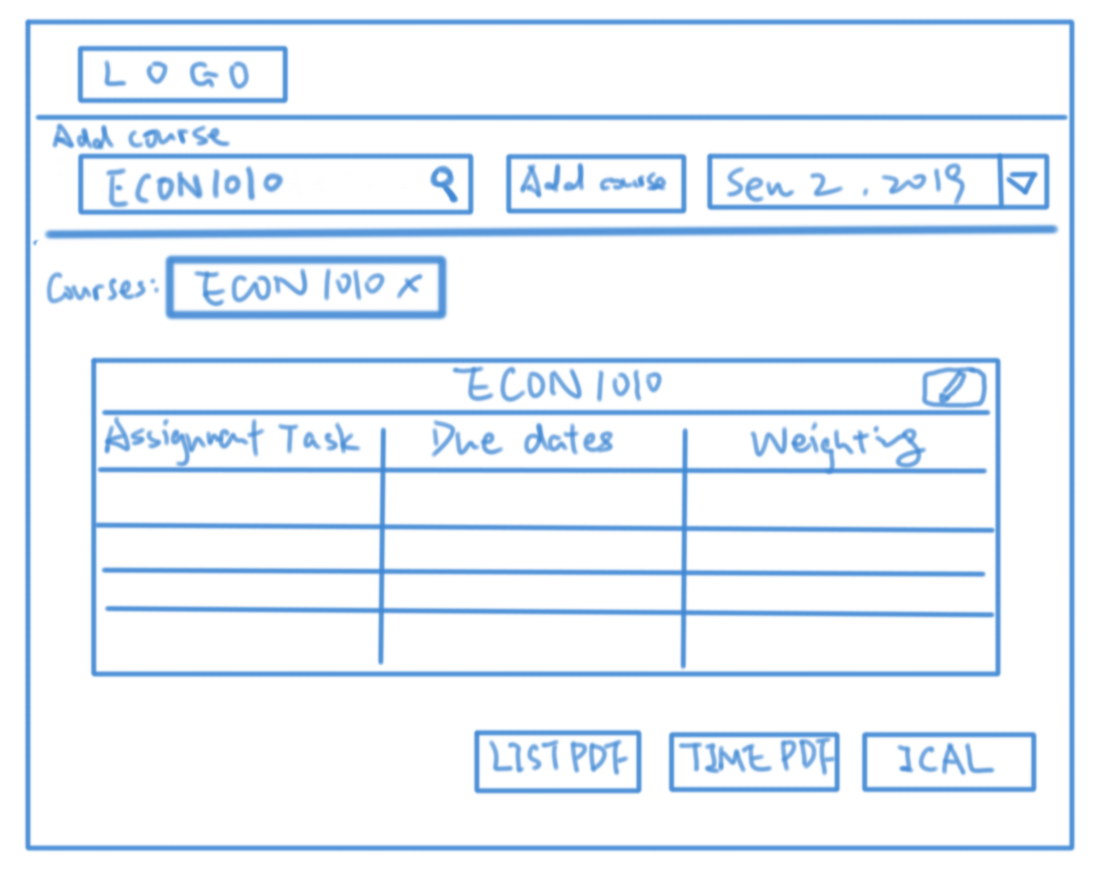 LOGO
Add course
ECON1010
Add course
Sem 2, 2019
Courses:
ECON1010 x
ECON1010
Assignment Task
Due dates
Weighting
LIST PDF
TIME PDF
ICAL